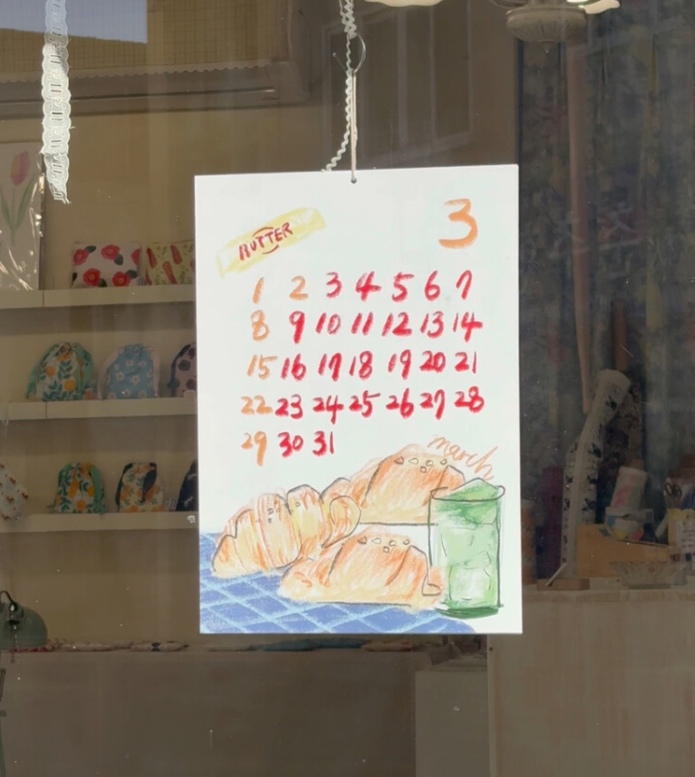 BUTTER
3
1 2 3 4 5 6 7
8 9 10 11 12 13 14
15 16 17 18 19 20 21
22 23 24 25 26 27 28
29 30 31
march